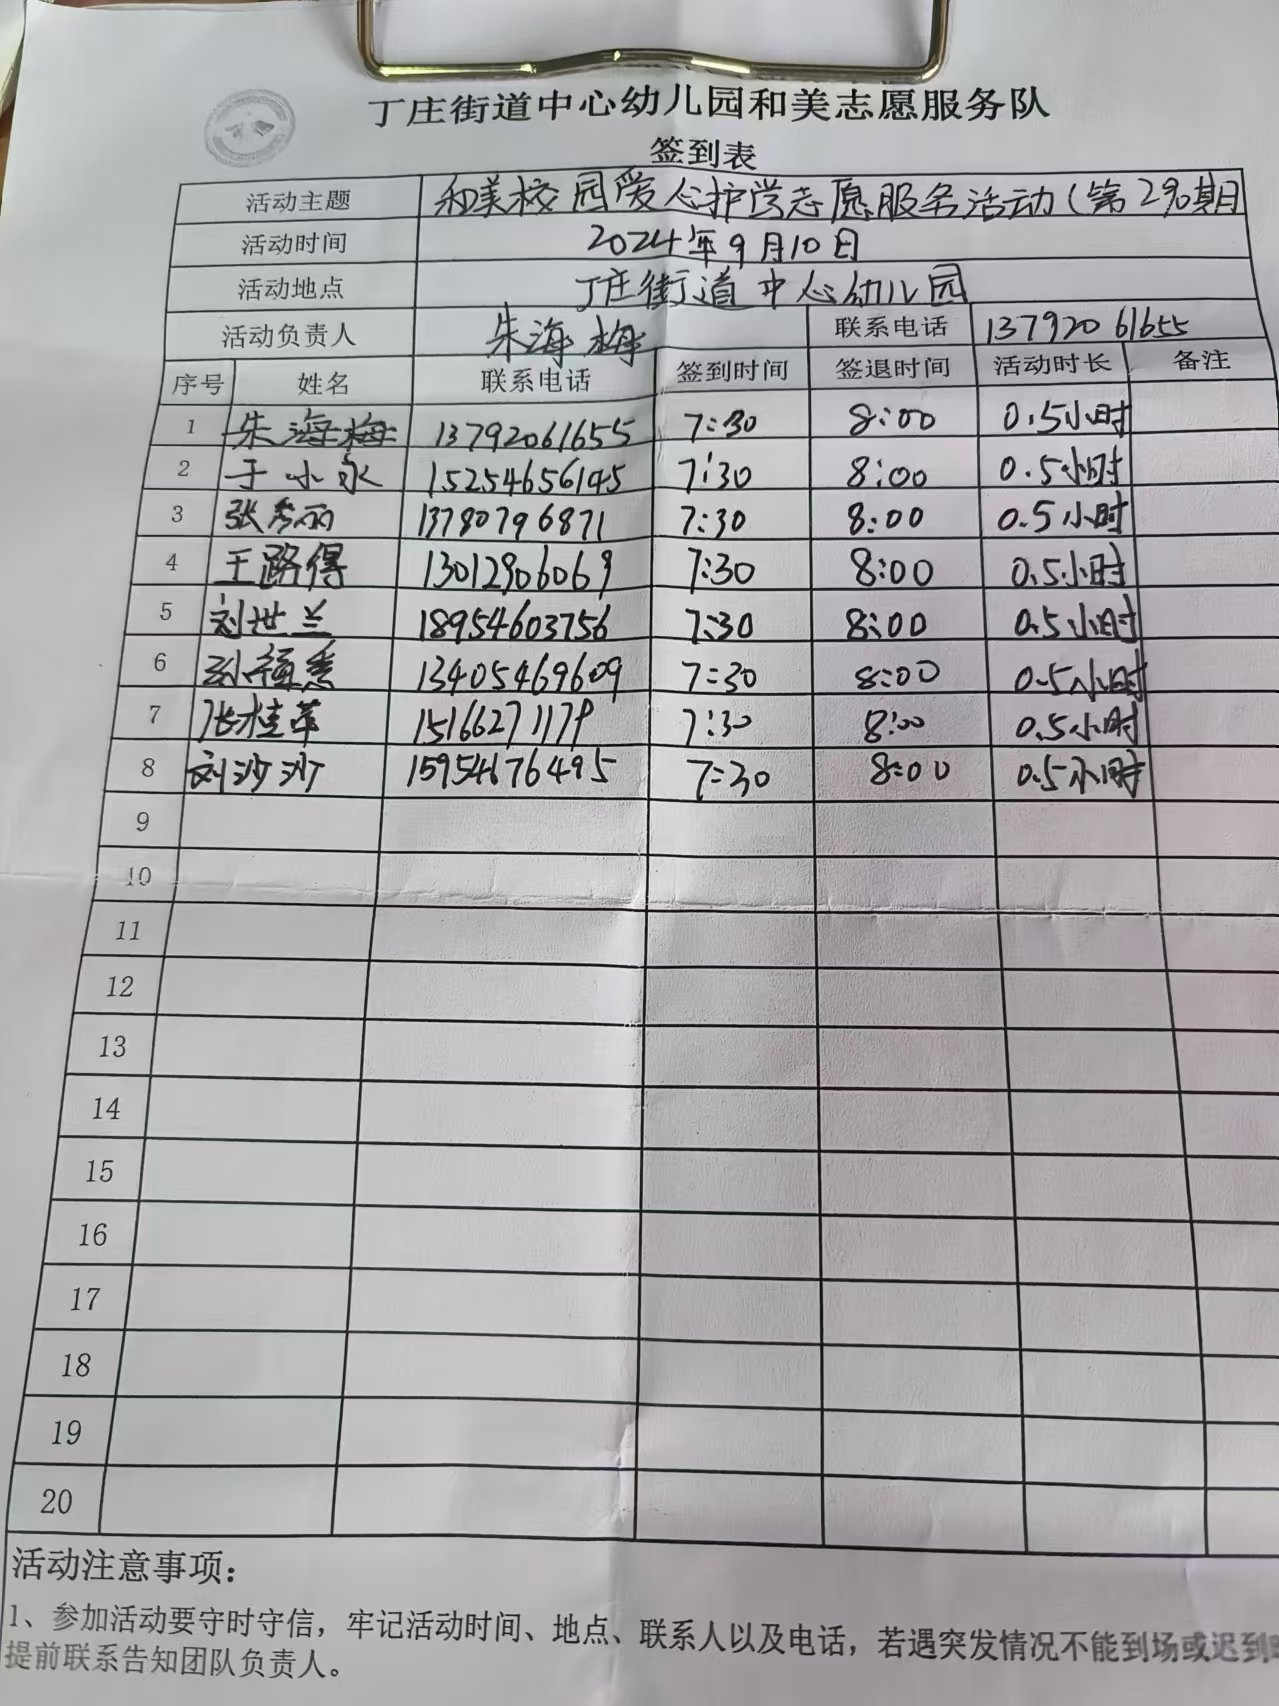 丁庄街道中心幼儿园和美志愿服务队
签到表
活动主题 和美校园爱心护学志愿服务活动(第290期
活动时间 2024年9月10日
活动地点 丁庄街道中心幼儿园
活动负责人 朱海梅 联系电话 13792061655
序号 姓名 联系电话 签到时间 签退时间 活动时长 备注
1 朱海梅 13792061655 7:30 8:00 0.5小时
2 于小永 15254656145 7:30 8:00 0.5小时
3 张秀丽 13780796871 7:30 8:00 0.5小时
4 王路得 13012906069 7:30 8:00 0.5小时
5 刘世兰 18954603756 7:30 8:00 0.5小时
6 13405469609 7:30 8:00 0.5小时
7 张桂革 15166271179 7:30 8:00 0.5小时
8 刘沙沙 15954676495 7:30 8:00 0.5小时
9
10
11
12
13
14
15
16
17
18
19
20
活动注意事项:
1、参加活动要守时守信，牢记活动时间、地点、联系人以及电话，若遇突发情况不能到场或迟到
提前联系告知团队负责人。